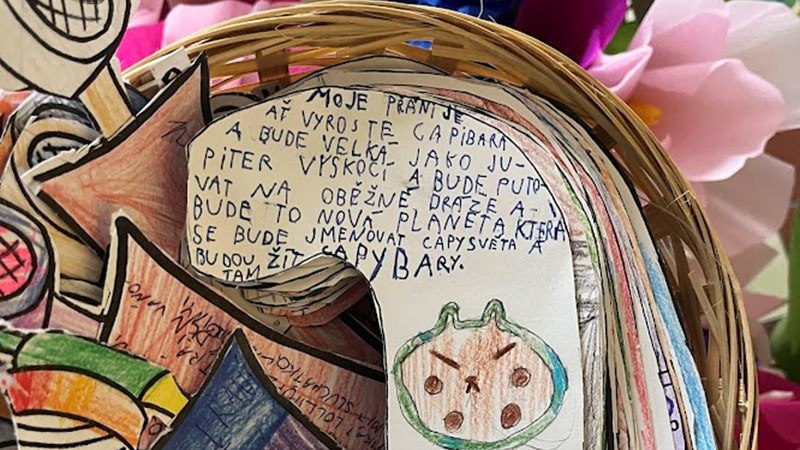 MOJE PŘÁNÍ JE
AŤ VYROSTE CAPIBARA
A BUDE VELKÁ JAKO JU-
PITER VYSKOČÍ A BUDE PUTO-
VAT NA OBĚŽNÉ DRÁZE A
BUDE TO NOVÁ PLANETA KTERÁ
SE BUDE JMENOVAT CAPYSVĚTA A
BUDOU ŽÍT CAPYBARY.
TAM